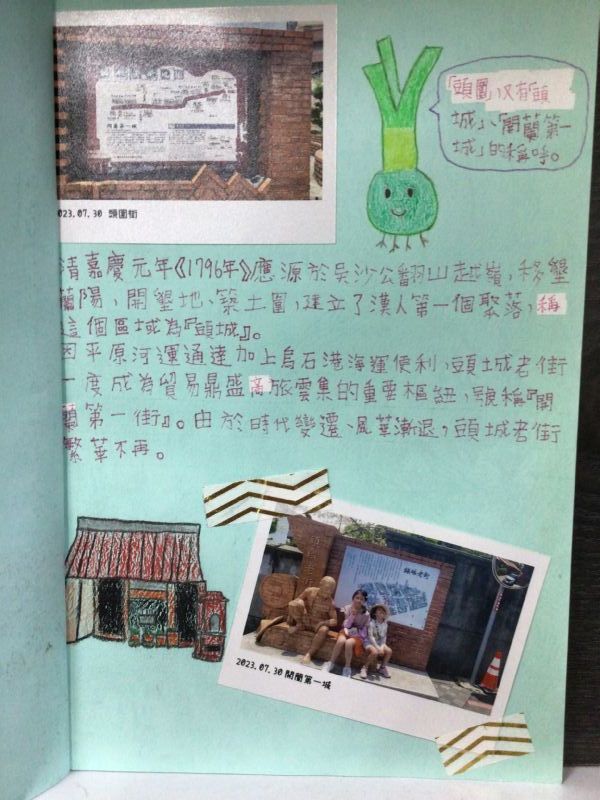 2023.07.30 頭圍街
「頭圍」又有「頭
城」、「開蘭第一
城」的稱呼。
清嘉慶元年《1796年》應源於吳沙公翻山越嶺,移墾
蘭陽,開墾地、築土圍,建立了漢人第一個聚落,稱
這個區域為『頭城』。
因平原河運通達加上烏石港海運便利,頭城老街
一度成為貿易鼎盛商旅雲集的重要樞紐,號稱『開
蘭第一街』。由於時代變遷、風華漸退,頭城老街
繁華不再。
頭城老街
2023.07.30 開蘭第一城